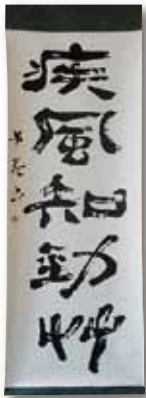 疾風知勁艸